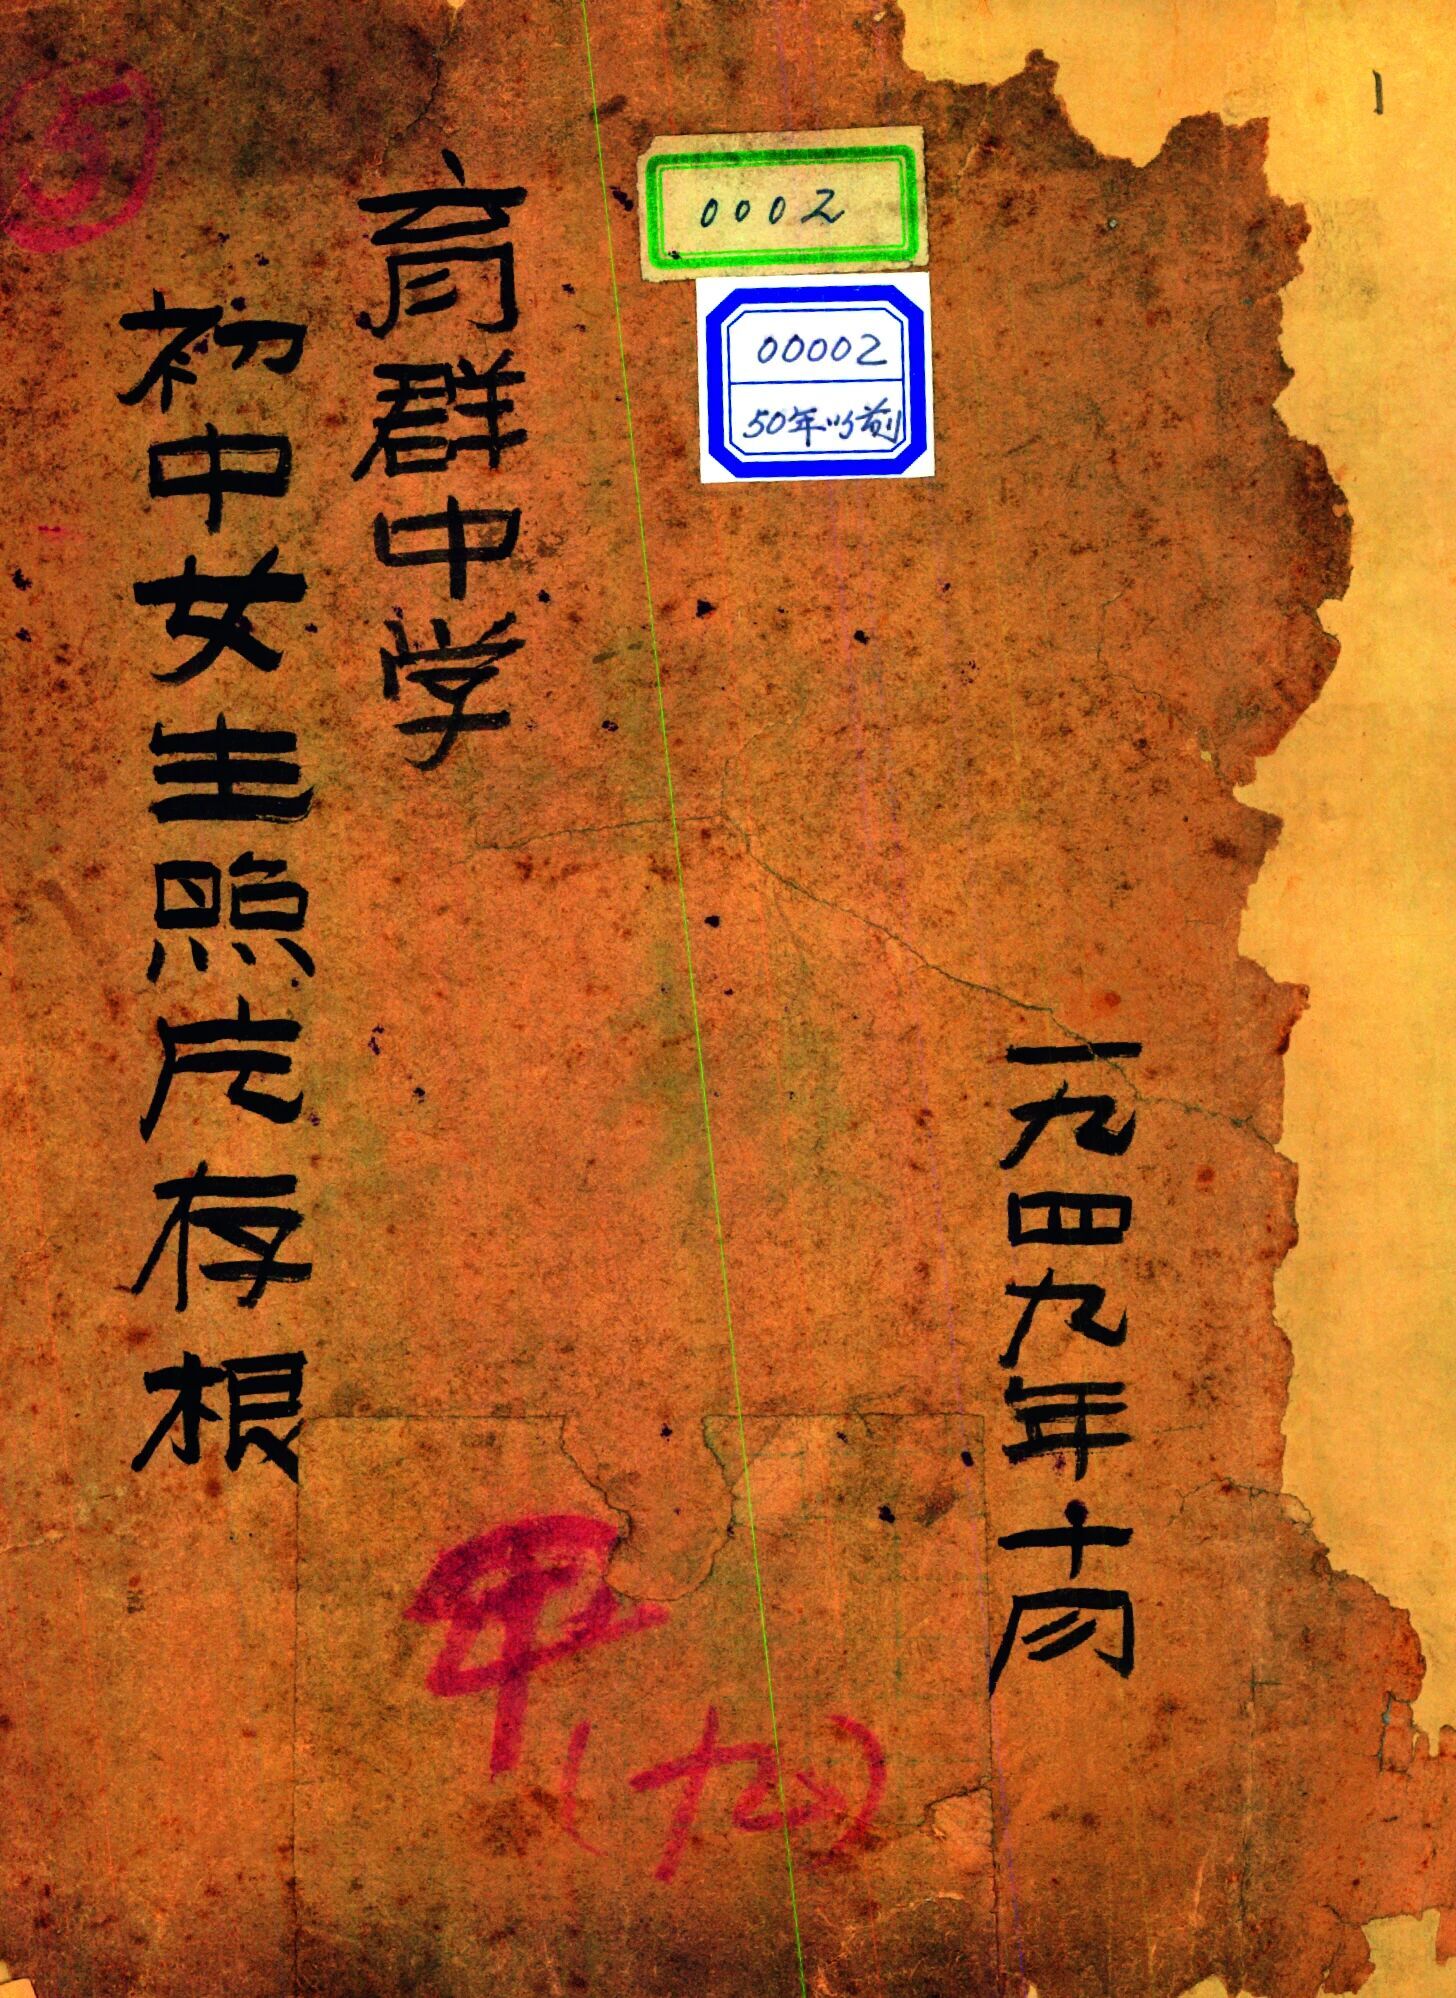 1
⑤
0002
00002
50年以前
育群中学
初中女生照片存根
一九四九年十月
甲